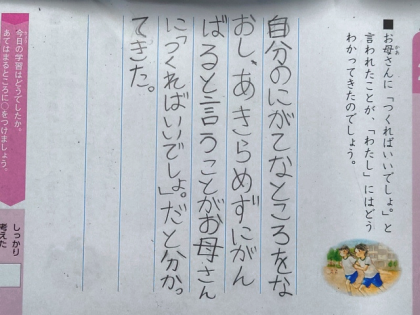 ■お母さんに「つくればいいでしょ。」と
言われたことが、「わたし」にはどう
わかってきたのでしょう。
自分のにがてなところをな
おし、あきらめずにがん
ばると言うことがお母さん
に「つくればいいでしょ。」だと分かっ
てきた。
今日の学習はどうでしたか。
あてはまるところに○をつけましょう。
しっかり
考えた